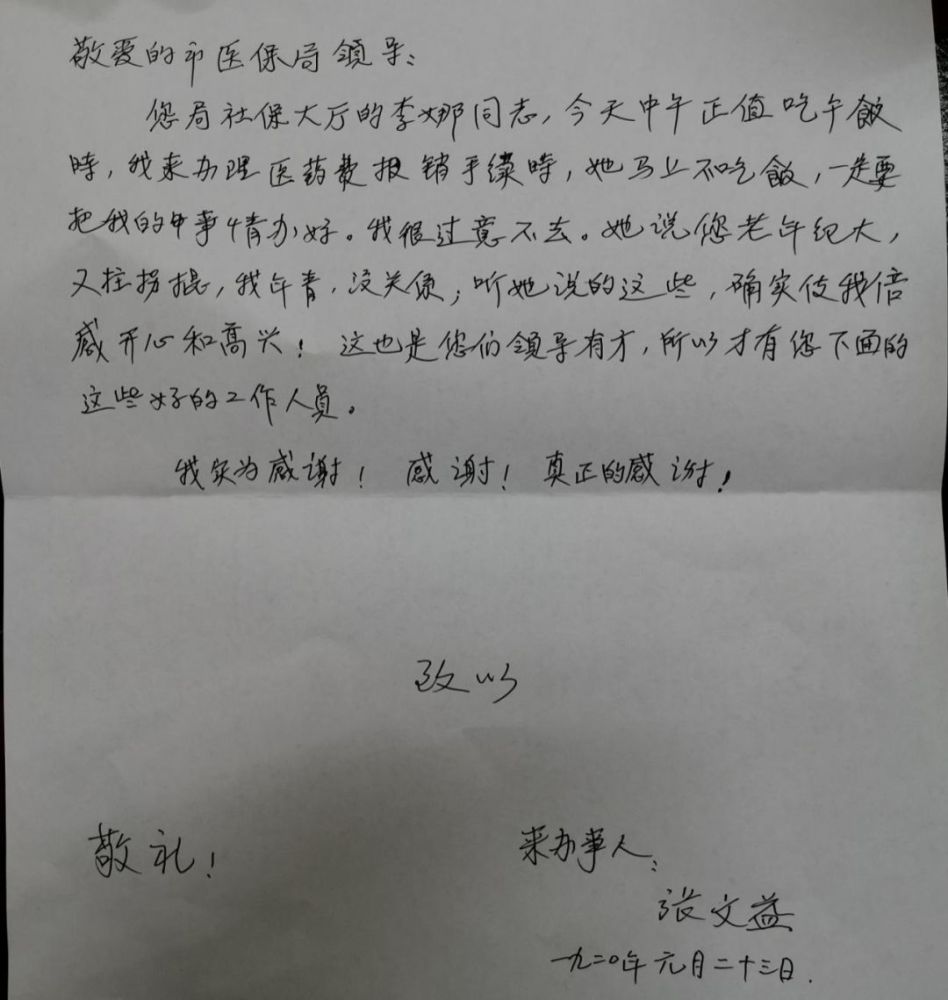 敬爱的市医保局領导：
您局社保大厅的李娜同志，今天中午正值吃午飯
時，我来办理医药费报销手续時，她马上不吃飯，一定要
把我的事情办好。我很过意不去。她说您老年纪大，
又拄拐棍，我年青，没关係；听她说的这些，确实使我倍
感开心和高兴！这也是您们領导有才，所以才有您下面的
这些好的工作人员。
我实为感谢！感谢！真正的感谢！
致以
敬礼！
来办事人：
张文益
一九二〇年元月二十三日.